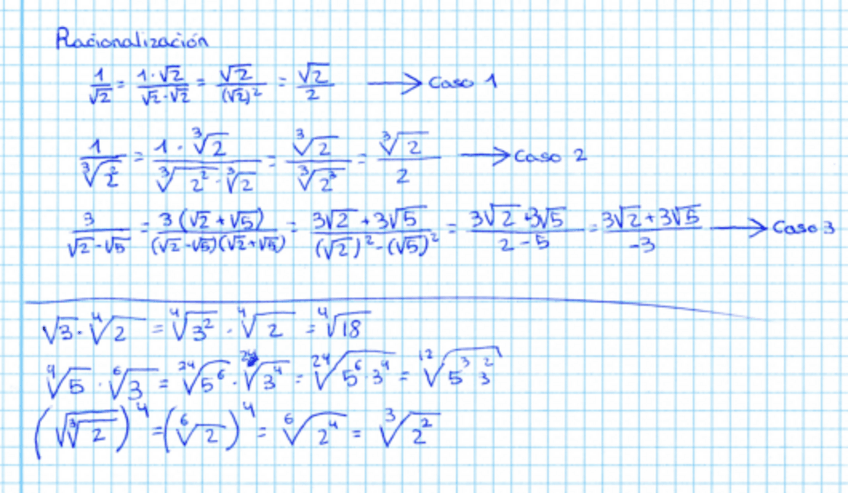 Racionalización
1/√2 = 1·√2/√2·√2 = √2/(√2)² = √2/2 → Caso 1
1/∛2² = 1·∛2/∛2²·∛2 = ∛2/∛2³ = ∛2/2 → Caso 2
3/√2-√5 = 3(√2+√5)/(√2-√5)(√2+√5) = 3√2+3√5/(√2)²-(√5)² = 3√2+3√5/2-5 = 3√2+3√5/-3 → Caso 3
√3·⁴√2 = ⁴√3²·⁴√2 = ⁴√18
⁴√5·⁶√3 = ²⁴√5⁶·²⁴√3⁴ = ²⁴√5⁶·3⁴ = ¹²√5³ 3²
(√∛2)⁴ = (⁶√2)⁴ = ⁶√2⁴ = ∛2²